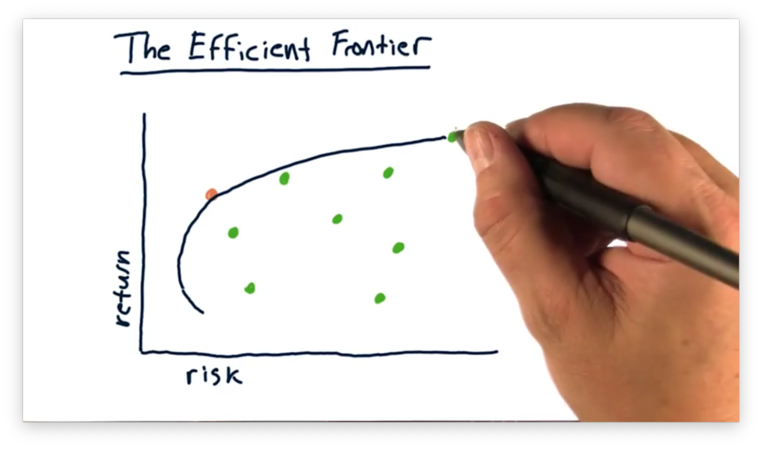 The Efficient Frontier
return
risk